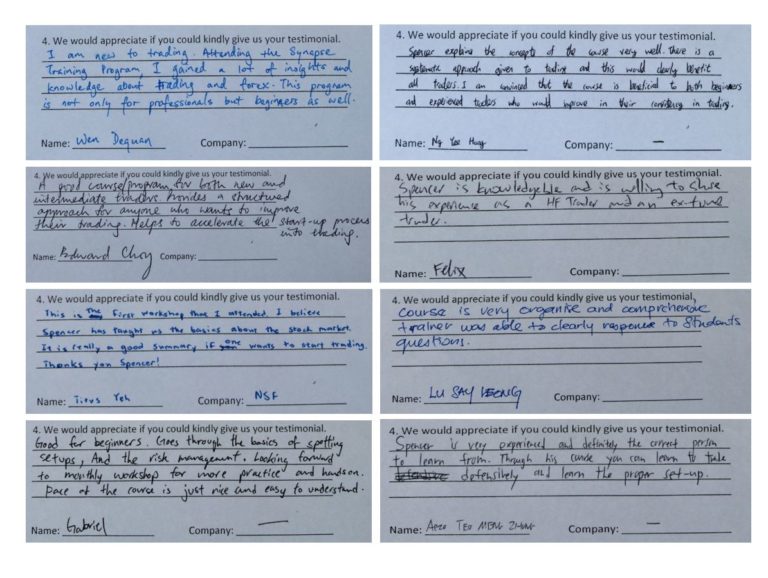 4. We would appreciate if you could kindly give us your testimonial.
I am new to trading. Attending the Synapse
Training Program, I gained a lot of insights and
knowledge about trading and forex. This program
is not only for professionals but beginners as well.
Name: Wen Dequan Company:
4. We would appreciate if you could kindly give us your testimonial.
Spencer explains the concepts of the course very well. There is a
systematic approach given to trading and this would clearly benefit
all traders. I am convinced that the course is beneficial to both beginners
and experienced traders who would improve in their consistency in trading.
Name: Ng Yee Company: —
4. We would appreciate if you could kindly give us your testimonial.
A good course/program, for both new and
intermediate traders. Provides a structured
approach for anyone who wants to improve
their trading. Helps to accelerate the start-up process
into trading.
Name: Edward Choy Company:
4. We would appreciate if you could kindly give us your testimonial.
Spencer is knowledgeble and is willing to share
his experience as a HF Trader and an ex-fund
trader.
Name: Felix Company:
4. We would appreciate if you could kindly give us your testimonial.
This is the first workshop that I attended. I believe
Spencer has taught us the basics about the stock market.
It is really a good summary if one wants to start trading.
Thanks you Spencer!
Name: Yeh Company: NSF
4. We would appreciate if you could kindly give us your testimonial.
Course is very organise and comprehensive
trainer was able to clearly response to students
questions.
Name: LU SAY LEONG Company:
4. We would appreciate if you could kindly give us your testimonial.
Good for beginners. Goes through the basics of spotting
setups, And the risk management. Looking forward
to monthly workshop for more practice and handson.
Pace of the course is just nice and easy to understand.
Name: Gabriel Company: —
4. We would appreciate if you could kindly give us your testimonial.
Spencer is very experienced and definitely the correct person
to learn from. Through his course you can learn to trade
defensively and learn the proper set-up.
Name: TEO MENG Company: —